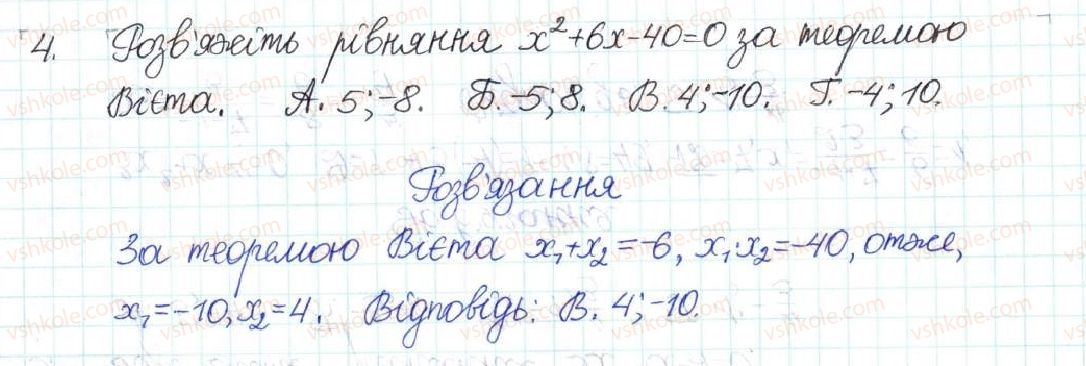 4. Розв'яжіть рівняння x²+6x-40=0 за теоремою
Вієта. А. 5;-8. Б. -5;8. В. 4;-10. Г. -4;10.
Розв'язання
За теоремою Вієта x₁+x₂=-6, x₁·x₂=-40, отже,
x₁=-10, x₂=4. Відповідь: В. 4;-10.